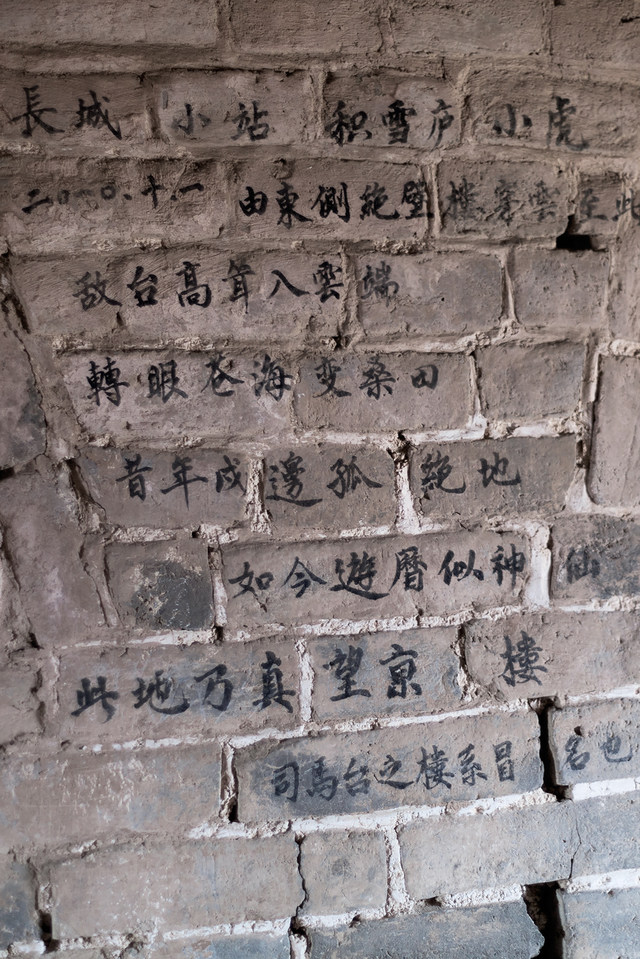 長城 小站 积雪庐 小虎
二〇一〇、十、一 由東側絶壁樓穿雲至此
敌台高耸入雲端
轉眼苍海变桑田
昔年戍邊孤絶地
如今遊曆似神仙
此地乃真望京樓
司馬台之樓系冒名也